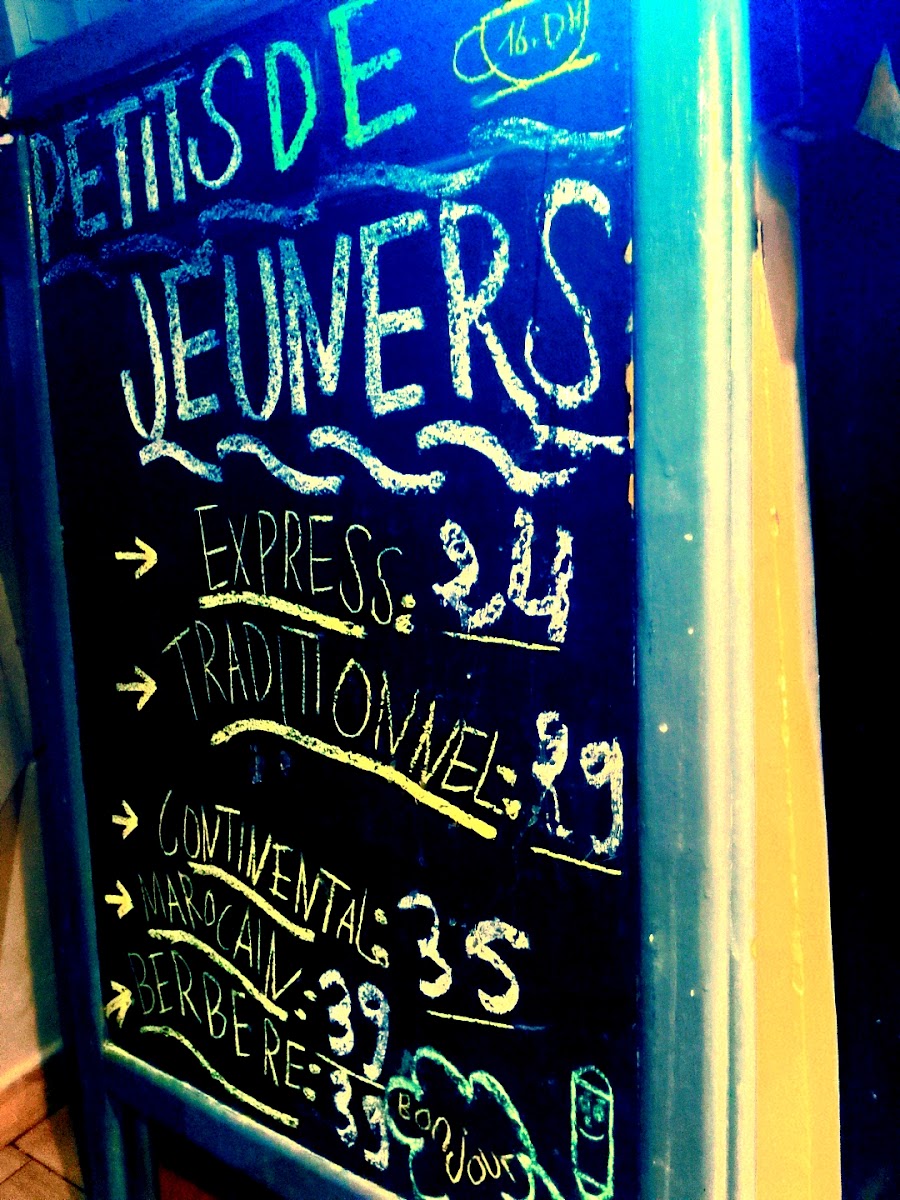 PETITS DE 16.DH
JEUNERS
→ EXPRESS: 24
→ TRADITIONNEL: 29
→ CONTINENTAL: 35
→ MAROCAIN: 39
→ BERBERE: 39
BonJour